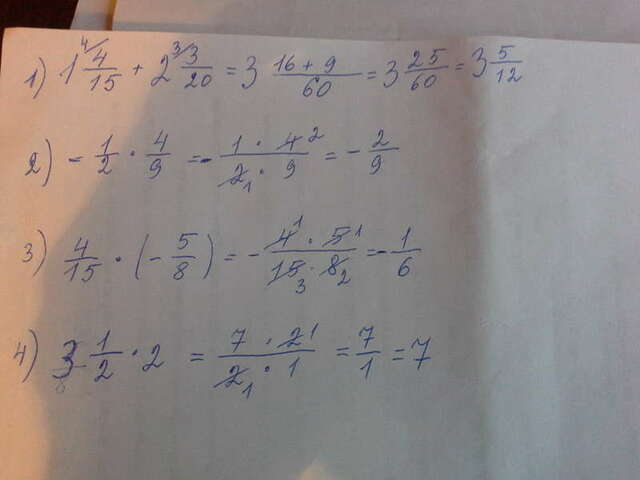 1) 1 4/15 4/ + 2 3/20 3/ = 3 (16 + 9)/60 = 3 25/60 = 3 5/12
2) - 1/2 · 4/9 = - (1 · 4 2)/(2 1 · 9) = - 2/9
3) 4/15 · (- 5/8) = - (4 1 · 5 1)/(15 3 · 8 2) = - 1/6
4) 3 1/2 · 2 = (7 · 2 1)/(2 1 · 1) = 7/1 = 7